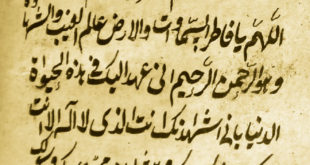 اللّهمّ يا فاطر السّموات والارض علم الغيب والشهادة
وهو الرّحمن الرّحيم انى عهد اليك فى هذه الحيوة
الدنيا بانى اشهد انك انت الذى لا اله الا انت